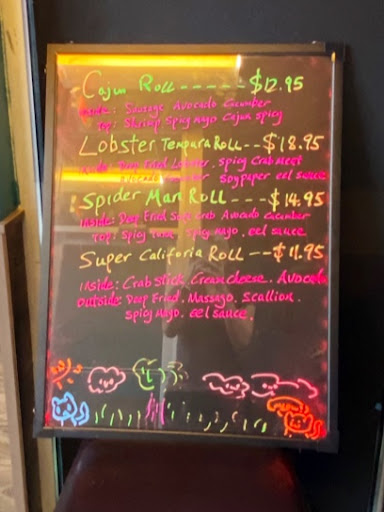 Cajun Roll ----- $12.95
Inside: Sausage Avocado Cucumber
Top: Shrimp. Spicy mayo Cajun spicy
Lobster Tempura Roll -- $18.95
Inside: Deep Fried Lobster. spicy Crab meat
soy paper eel sauce
Spider Man Roll --- $14.95
Inside: Deep Fried Soft Crab Avocado cucumber
Top: Spicy tuna. Spicy mayo. eel sauce.
Super Califoria Roll -- $11.95
Inside: Crab Stick Cream cheese. Avocado
Outside: Deep Fried. Massago. Scallion.
Spicy mayo. eel sauce.